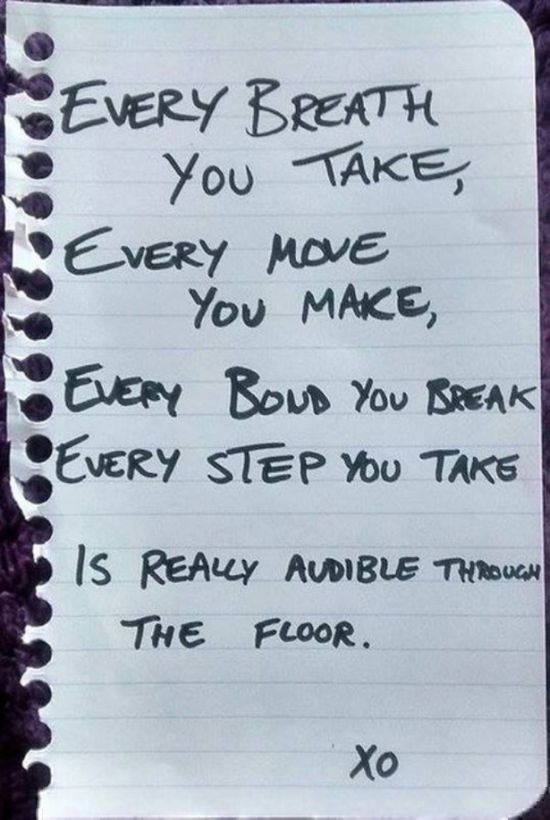 EVERY BREATH
YOU TAKE,
EVERY MOVE
YOU MAKE,
EVERY BOND YOU BREAK
EVERY STEP YOU TAKE
IS REALLY AUDIBLE THROUGH
THE FLOOR.
XO